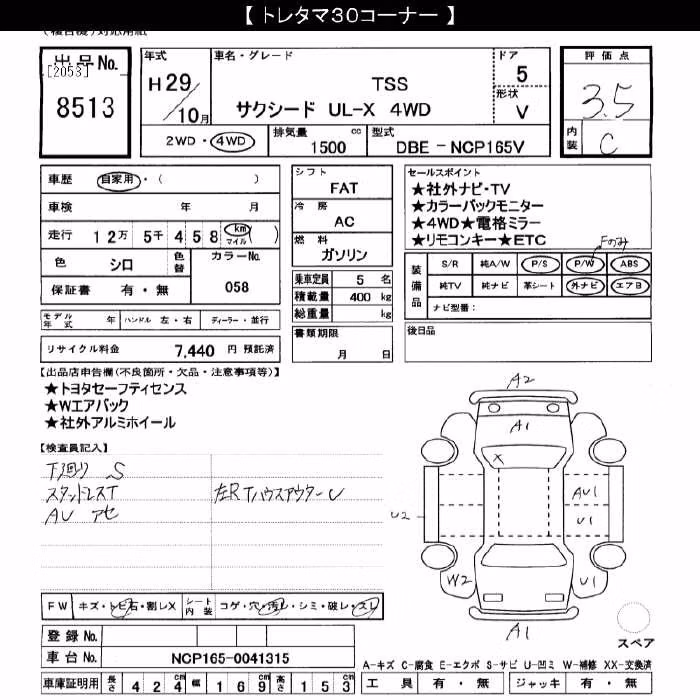 【 トレタマ30コーナー 】
出品No.
[2053]
8513
年式
H29/10月
車名・グレード
TSS
サクシード UL-X 4WD
ドア
5
形状
V
評価点
3.5
内装
C
2WD・4WD
排気量
1500 cc
型式
DBE-NCP165V
車歴 自家用・( )
車検 年 月
走行 12万 5千 458 (km マイル)
色 シロ 色替 カラーNo. 058
保証書 有・無
シフト
FAT
冷房
AC
燃料
ガソリン
乗車定員 5 名
積載量 400 kg
総重量 kg
書類期限
月 日
セールスポイント
★社外ナビ・TV
★カラーバックモニター
★4WD★電格ミラー
★リモコンキー★ETC
Fのみ
装備品
S/R 純A/W P/S P/W ABS
純TV 純ナビ 革シート 外ナビ エアB
ナビ型番:
後日品
モデル年式 年 ハンドル 左・右 ディーラー・並行
リサイクル料金 7,440 円 預託済
【出品店申告欄(不良箇所・欠品・注意事項等)】
★トヨタセーフティセンス
★Wエアバック
★社外アルミホイール
【検査員記入】
下廻り S
スタッドレスT
左RTハウスアウターU
AU アセ
FW キズ・トビ石・割レX シート内装 コゲ・穴・汚レ・シミ・破レ・スレ
登録No.
車台No. NCP165-0041315
車庫証明用 長さ 424cm 幅 169cm 高さ 153cm
A2
A1
X
AU1
U1
U2
W2
U1
A1
スペア
A-キズ C-腐食 E-エクボ S-サビ U-凹ミ W-補修 XX-交換済
工具 有・無 ジャッキ 有・無